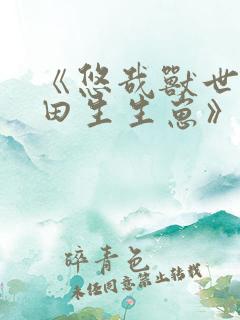 《悠哉獸世
田生生崽》
碎青色
未经同意禁止转载